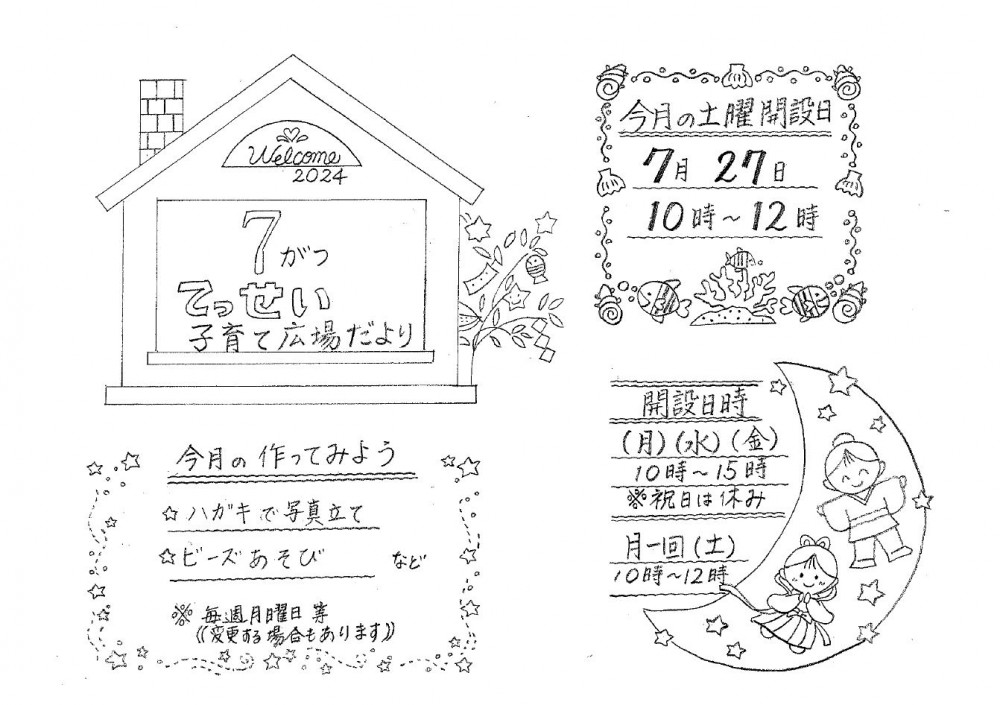 Welcome
2024
7がつ
てっせい
子育て広場だより
今月の土曜開設日
7月 27日
10時~12時
今月の作ってみよう
☆ハガキで写真立て
☆ビーズあそび など
※毎週月曜日等
((変更する場合もあります))
開設日時
(月)(水)(金)
10時~15時
※祝日は休み
月一回(土)
10時~12時